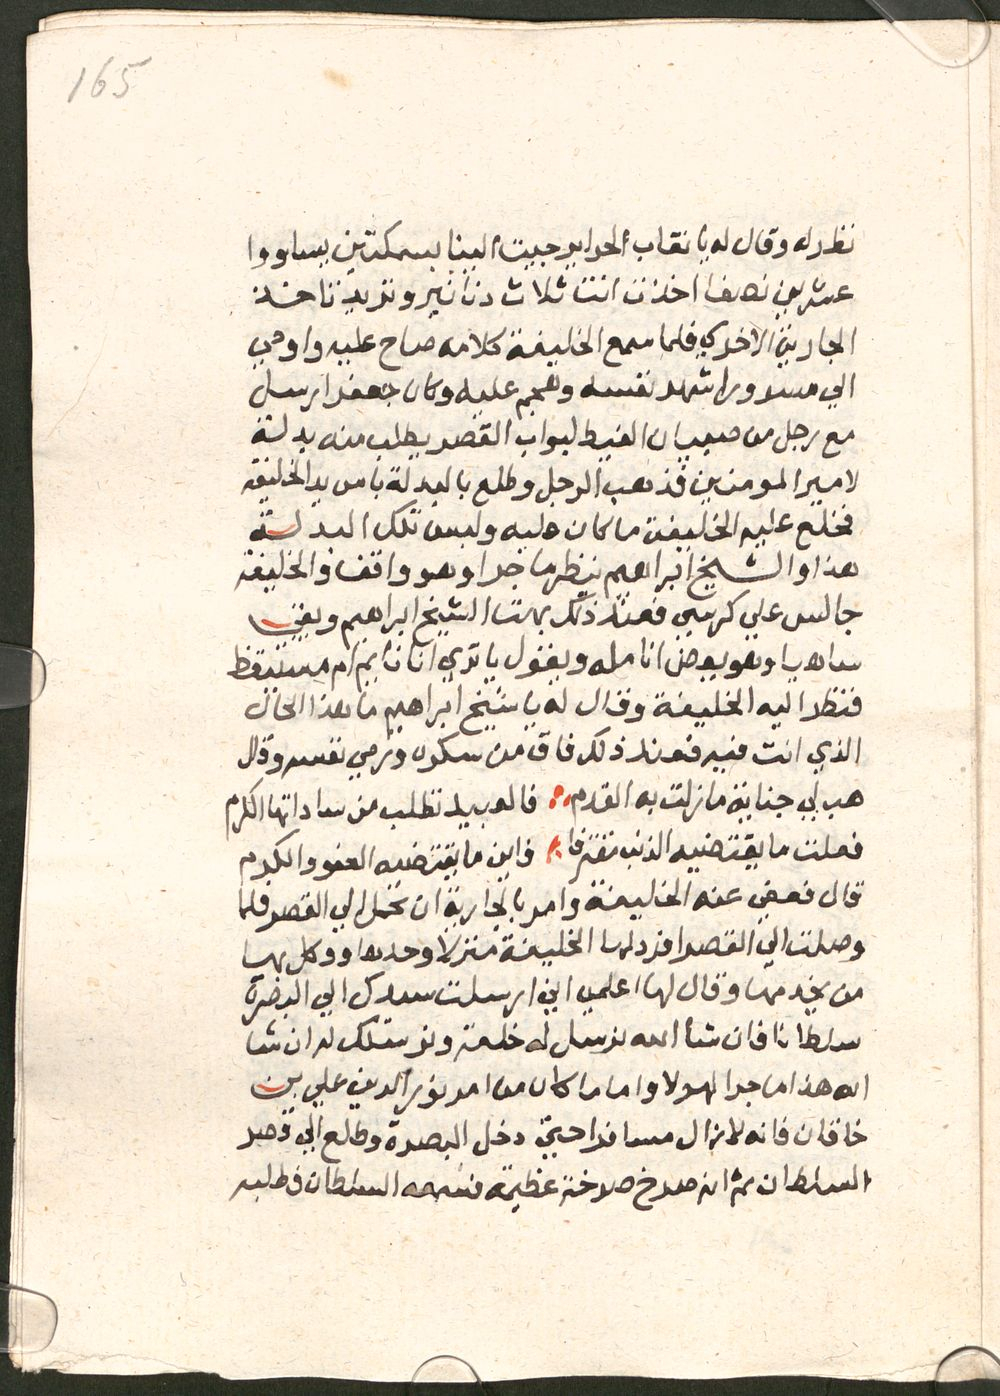 165
نظر له وقال له يا نقاب الحراير جبيت الينا بسمكتين يساووا
عشرين نصفا اخذت انت ثلاث دنانير وتريد تاخذ
الجارية الاخري فلما سمع الخليفة كلامه صاح عليه واومي
الي مسرور اشهد نفسه وهجم عليه وكان جعفر ارسل
مع رجل من صبيان الغيط لبواب القصر يطلب منه بدلة
لامير المومنين فذهب الرجل وطلع بالبدلة بامر يد الخليفة
فخلع عليه الخليفة ما كان عليه ولبس تلك البدلة
هذا والشيخ ابراهيم ينظر ما جرا وهو واقف والخليفة
جالس علي كرسي فعند ذلك بهت الشيخ ابراهيم وبقي
ساهيا وهو يعض انامله ويقول يا تري انا نايم ام مستيقظ
فنظر اليه الخليفة وقال له يا شيخ ابراهيم ما هذا الحال
الذي انت فيه فعند ذلك فاق من سكره ورمي نفسه وقال
هب لي جناية ما زلت به القدم فالعبيد تطلب من ساداتها الكرم
فعلت ما يقتضيه الذنب مقترفا فاين ما يقتضيه العفو والكرم
قال فعفي عنه الخليفة وامر بالجارية ان تحمل الي القصر فلما
وصلت الي القصر افرد لها الخليفة منزلا وحدها ووكل بها
من يخدمها وقال لها اعلمي اني ارسلت سيدك الي البصرة
سلطانا فان شا الله نرسل له خلعة ونرسلك له ان شا
الله هذا ما جرا لهولا واما ما كان من امر نور الدين علي بن
خاقان فانه لا زال مسافرا حتي دخل البصرة وطلع الي قصر
السلطان ثم انه صرخ صرخة عظيمة فسمعه السلطان فطلبه